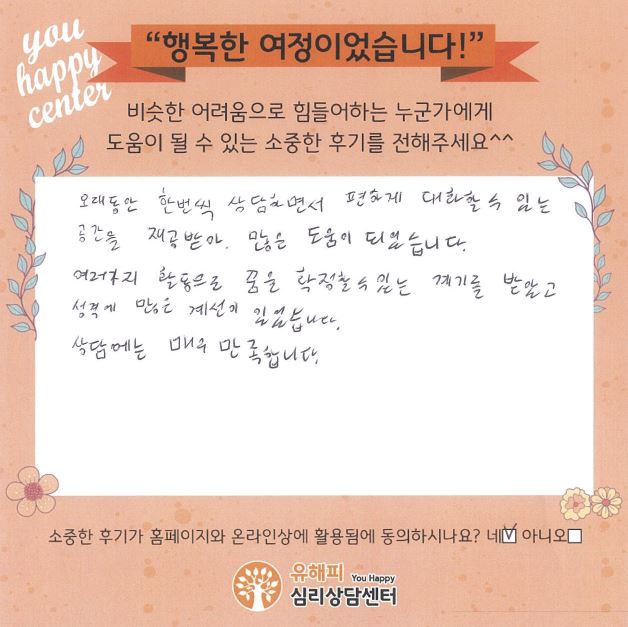 you
happy
center
“행복한 여정이었습니다!”
비슷한 어려움으로 힘들어하는 누군가에게
도움이 될 수 있는 소중한 후기를 전해주세요^^
오래동안 한번씩 상담하면서 편하게 대화할 수 있는
공간을 제공받아. 많은 도움이 되었습니다.
여러가지 활동으로 꿈을 확정할수있는 계기를 받았고
성격에 많은 계선이 있었습니다.
상담에는 매우 만족합니다.
소중한 후기가 홈페이지와 온라인상에 활용됨에 동의하시나요? 네☑ 아니오☐
유해피 You Happy
심리상담센터